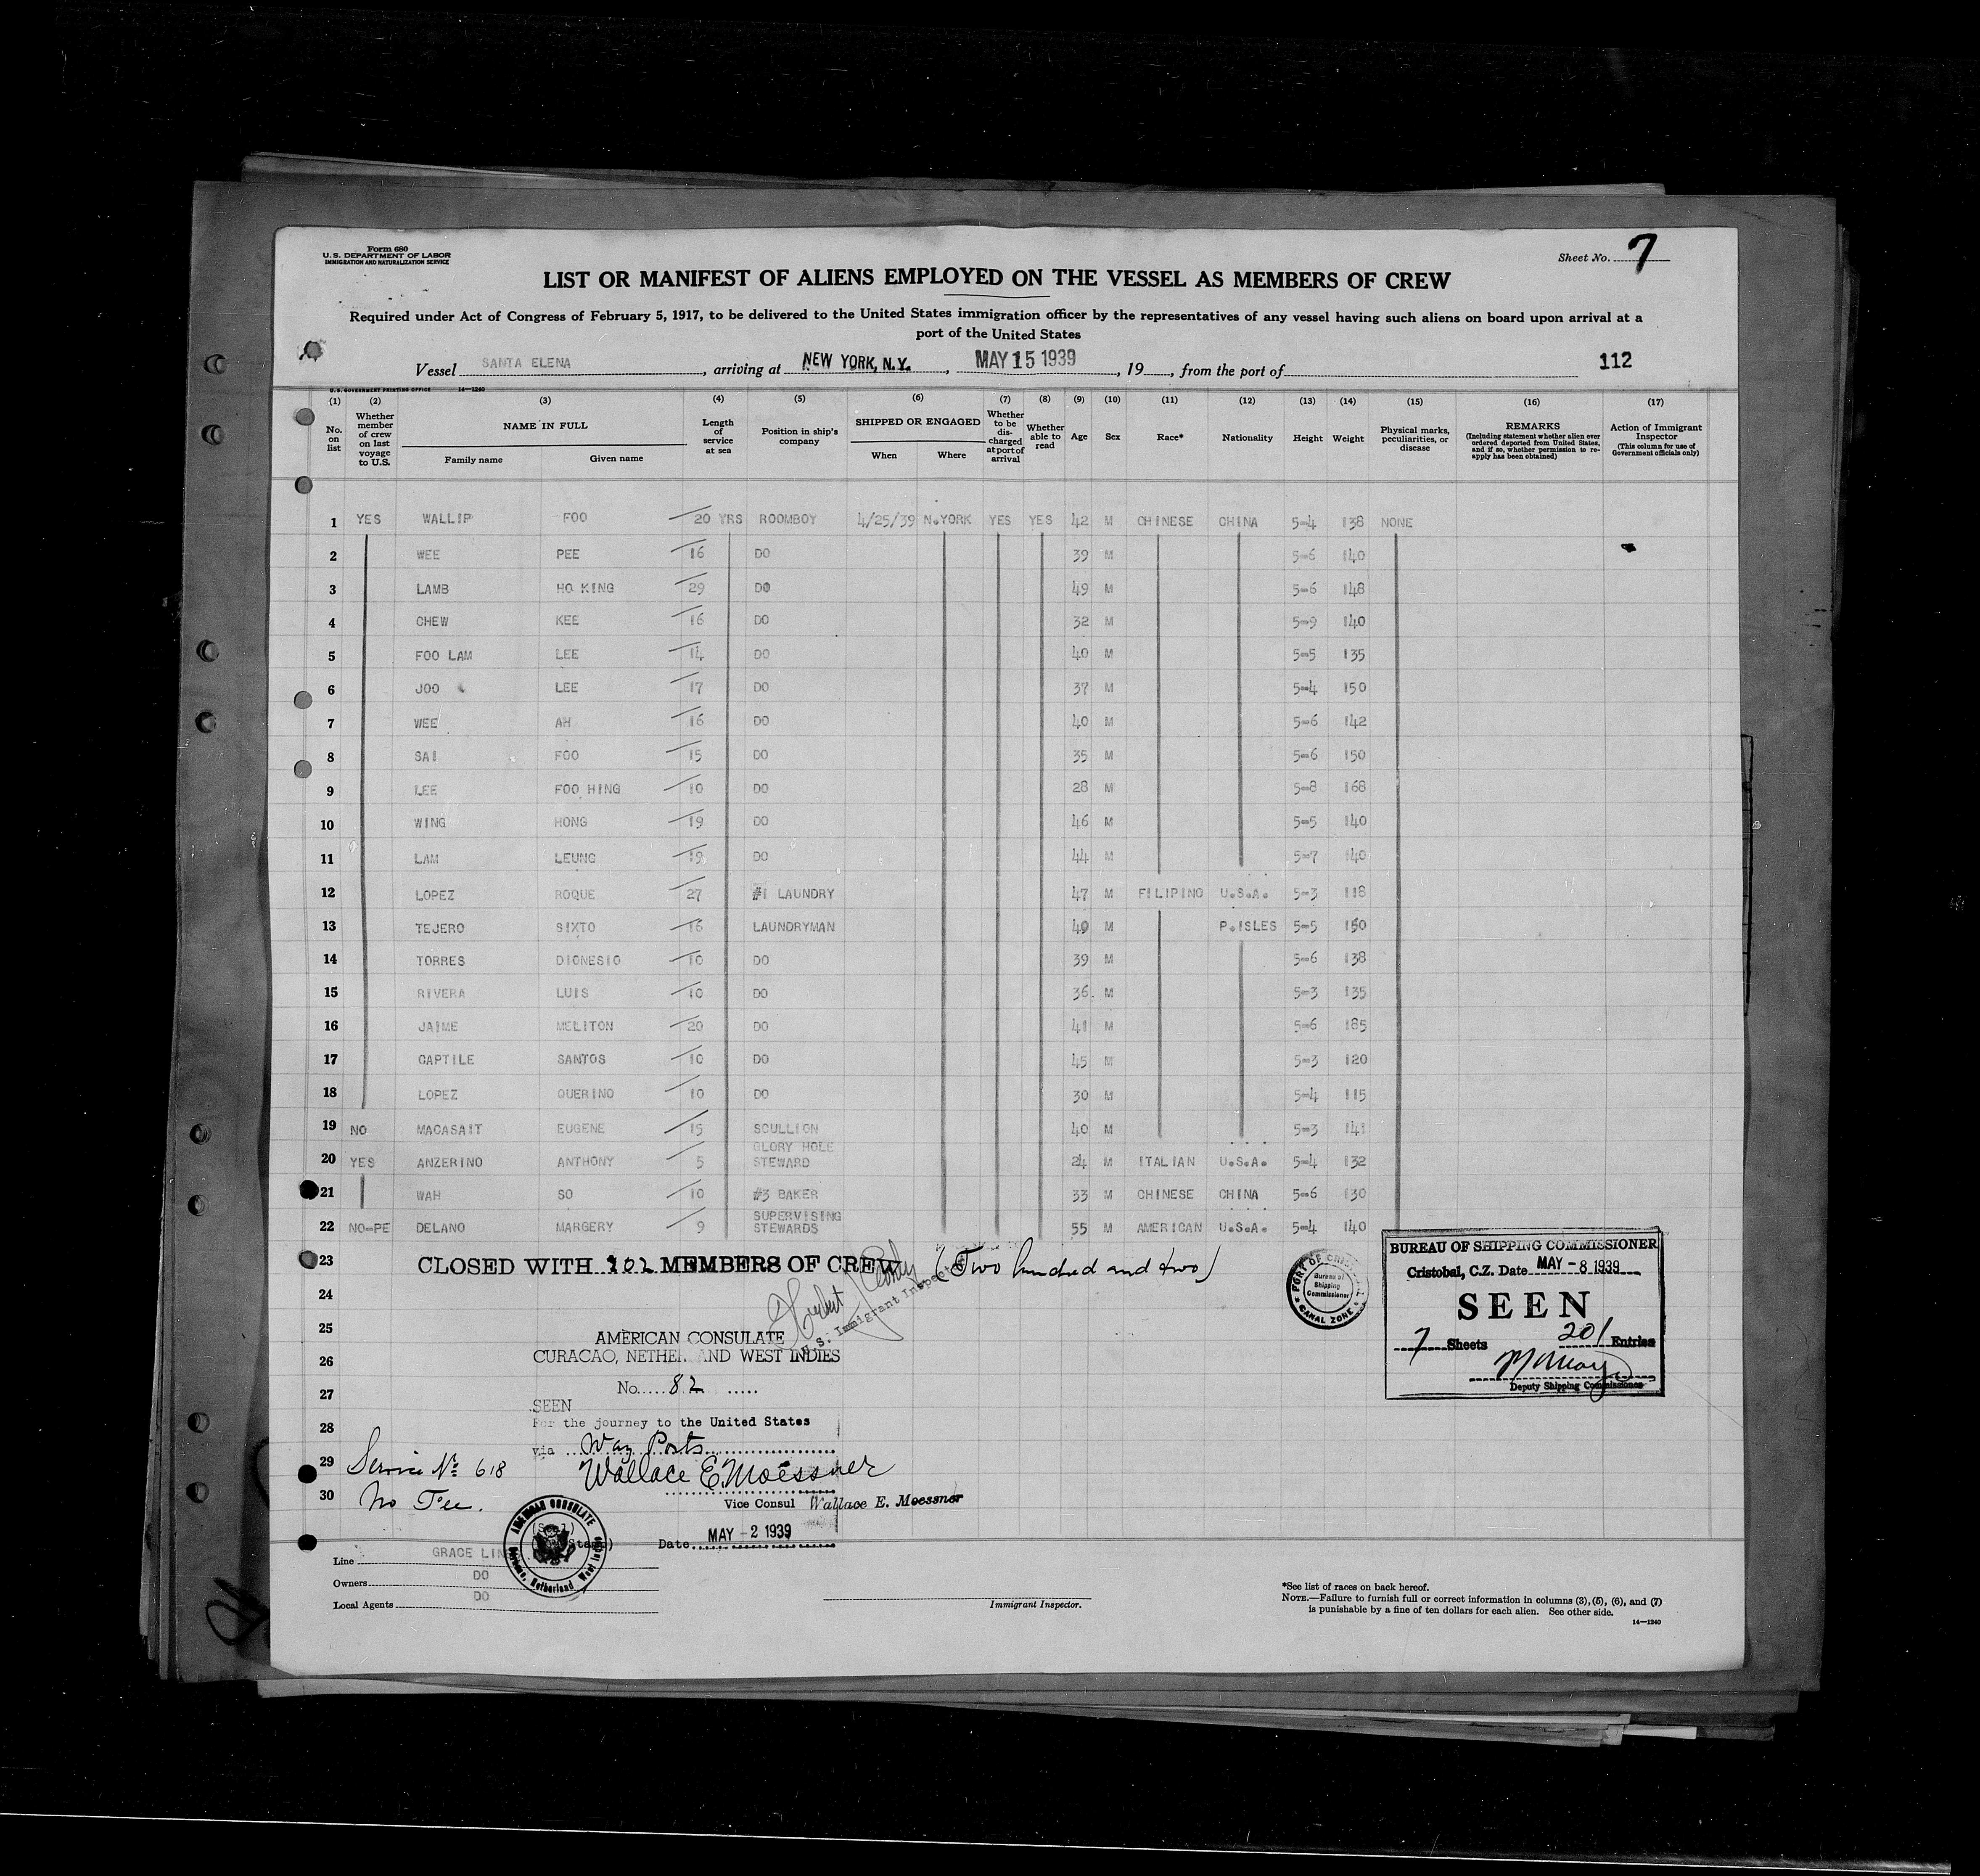 Form 680
U.S. DEPARTMENT OF LABOR
IMMIGRATION AND NATURALIZATION SERVICE
Sheet No. 7
LIST OR MANIFEST OF ALIENS EMPLOYED ON THE VESSEL AS MEMBERS OF CREW
Required under Act of Congress of February 5, 1917, to be delivered to the United States immigration officer by the representatives of any vessel having such aliens on board upon arrival at a
port of the United States
Vessel SANTA ELENA, arriving at NEW YORK, N.Y., MAY 15 1939, 19, from the port of 112
U.S. GOVERNMENT PRINTING OFFICE 14—1240
(1) (2) (3) (4) (5) (6) (7) (8) (9) (10) (11) (12) (13) (14) (15) (16) (17)
No. on list
Whether member of crew on last voyage to U.S.
NAME IN FULL
Family name Given name
Length of service at sea
Position in ship's company
SHIPPED OR ENGAGED
When Where
Whether to be discharged at port of arrival
Whether able to read
Age
Sex
Race*
Nationality
Height
Weight
Physical marks, peculiarities, or disease
REMARKS
(Including statement whether alien ever ordered deported from United States, and if so, whether permission to reapply has been obtained)
Action of Immigrant Inspector
(This column for use of Government officials only)
1 YES WALLIP FOO 20 YRS ROOMBOY 4/25/39 N.YORK YES YES 42 M CHINESE CHINA 5-4 138 NONE
2 WEE PEE 16 DO 39 M 5-6 140
3 LAMB HO KING 29 DO 49 M 5-6 148
4 CHEW KEE 16 DO 32 M 5-9 140
5 FOO LAM LEE 14 DO 40 M 5-5 135
6 JOO LEE 17 DO 37 M 5-4 150
7 WEE AH 16 DO 40 M 5-6 142
8 SAI FOO 15 DO 35 M 5-6 150
9 LEE FOO HING 10 DO 28 M 5-8 168
10 WING HONG 19 DO 46 M 5-5 140
11 LAM LEUNG 19 DO 44 M 5-7 140
12 LOPEZ ROQUE 27 #1 LAUNDRY 47 M FILIPINO U.S.A. 5-3 118
13 TEJERO SIXTO 16 LAUNDRYMAN 49 M P.ISLES 5-5 150
14 TORRES DIONESIO 10 DO 39 M 5-6 138
15 RIVERA LUIS 10 DO 36 M 5-3 135
16 JAIME MELITON 20 DO 41 M 5-6 185
17 CAPTILE SANTOS 10 DO 45 M 5-3 120
18 LOPEZ QUERINO 10 DO 30 M 5-4 115
19 NO MACASAIT EUGENE 15 SCULLION 40 M 5-3 141
20 YES ANZERINO ANTHONY 5 GLORY HOLE STEWARD 24 M ITALIAN U.S.A. 5-4 132
21 WAH SO 10 #3 BAKER 33 M CHINESE CHINA 5-6 130
22 NO-PE DELANO MARGERY 9 SUPERVISING STEWARDS 55 M AMERICAN U.S.A. 5-4 140
23 CLOSED WITH 202 MEMBERS OF CREW (Two hundred and two)
U.S. Immigrant Inspector
24
25
26
27
28
29
30
PORT OF CRISTOBAL
Bureau of Shipping Commissioner
CANAL ZONE
BUREAU OF SHIPPING COMMISSIONER
Cristobal, C.Z. Date MAY - 8 1939
SEEN
7 Sheets 201 Entries
Deputy Shipping Commissioner
AMERICAN CONSULATE
CURACAO, NETHERLAND WEST INDIES
No. 82
SEEN
For the journey to the United States
via Way Ports
Wallace E. Moessner
Vice Consul Wallace E. Moessner
Service No 618
No Fee.
AMERICAN CONSULATE
Curacao, Netherland West Indies
Date MAY - 2 1939
Line GRACE LINE
Owners DO
Local Agents DO
Immigrant Inspector.
*See list of races on back hereof.
NOTE.—Failure to furnish full or correct information in columns (3), (5), (6), and (7)
is punishable by a fine of ten dollars for each alien. See other side.
14—1240